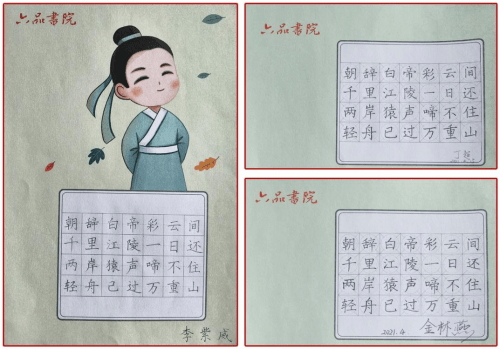 六品書院
朝辞白帝彩云间
千里江陵一日还
两岸猿声啼不住
轻舟已过万重山
李紫威
六品書院
朝辞白帝彩云间
千里江陵一日还
两岸猿声啼不住
轻舟已过万重山
六品書院
朝辞白帝彩云间
千里江陵一日还
两岸猿声啼不住
轻舟已过万重山
2021.4 金林燕